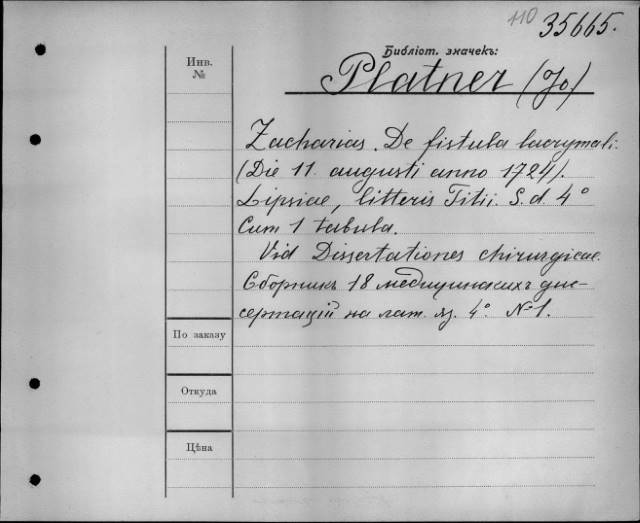 110 35665.
Библіот. значекъ:
Инв. №
Platner (Jo)
Zacharias. De fistula lacrymali.
(Die 11. augusti anno 1724).
Lipsiae, litteris Titii. S. d. 4°
Cum 1 tabula.
Vid Dissertationes chirurgicae.
Сборникъ 18 медицинскихъ дис-
сертацій на лат. яз. 4°. №1.
По заказу
Откуда
Цѣна